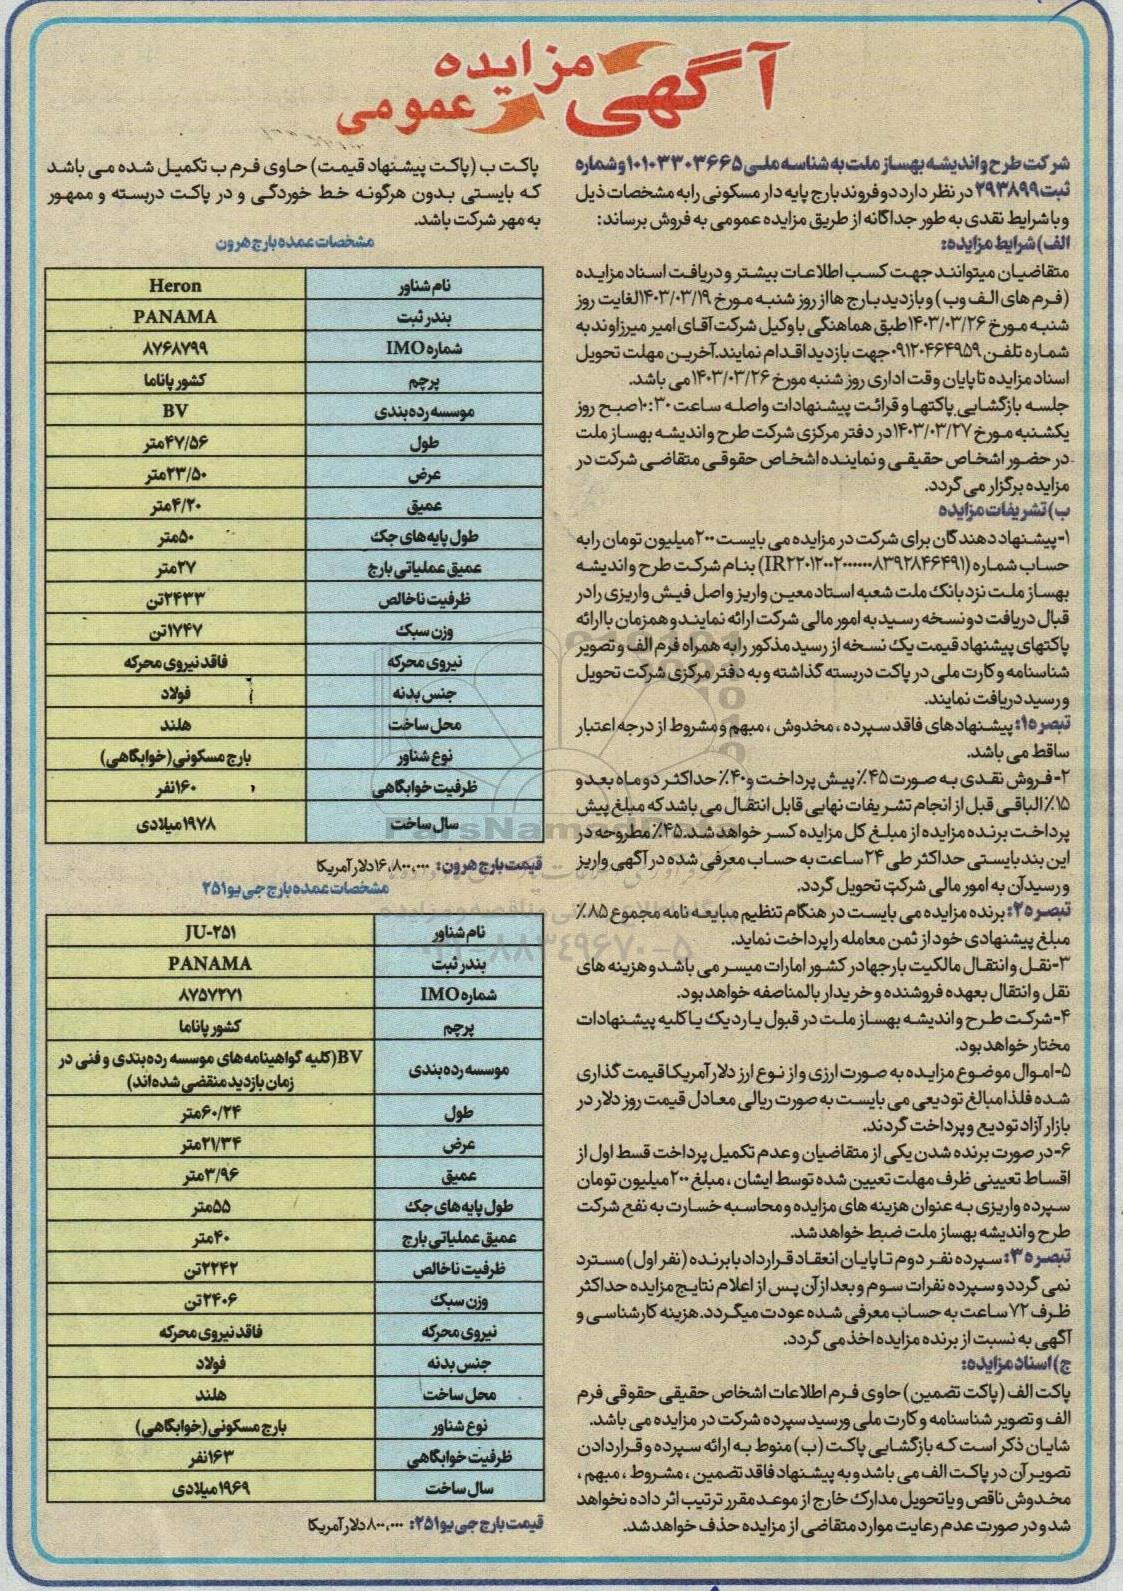 آگهی مزایده عمومی
شرکت طرح و اندیشه بهساز ملت به شناسه ملی ۱۰۱۰۳۳۰۳۶۶۵ و شماره
ثبت ۲۹۳۸۹۹ در نظر دارد دو فروند بارج پایه دار مسکونی را به مشخصات ذیل
و با شرایط نقدی به طور جداگانه از طریق مزایده عمومی به فروش برساند:
الف) شرایط مزایده:
متقاضیان میتوانند جهت کسب اطلاعات بیشتر و دریافت اسناد مزایده
(فرم های الف و ب) و بازدید بارج ها از روز شنبه مورخ ۱۴۰۳/۰۳/۱۹ لغایت روز
شنبه مورخ ۱۴۰۳/۰۳/۲۶ طبق هماهنگی با وکیل شرکت آقای امیر میرزاوند به
شماره تلفن ۰۹۱۲۰۴۶۴۹۵۹ جهت بازدید اقدام نمایند. آخرین مهلت تحویل
اسناد مزایده تا پایان وقت اداری روز شنبه مورخ ۱۴۰۳/۰۳/۲۶ می باشد.
جلسه بازگشایی پاکتها و قرائت پیشنهادات واصله ساعت ۱۰:۳۰ صبح روز
یکشنبه مورخ ۱۴۰۳/۰۳/۲۷ در دفتر مرکزی شرکت طرح و اندیشه بهساز ملت
در حضور اشخاص حقیقی و نماینده اشخاص حقوقی متقاضی شرکت در
مزایده برگزار می گردد.
ب) تشریفات مزایده
۱- پیشنهاد دهندگان برای شرکت در مزایده می بایست ۲۰۰ میلیون تومان را به
حساب شماره بنام شرکت طرح و اندیشه
بهساز ملت نزد بانک ملت شعبه استاد معین واریز و اصل فیش واریزی را در
قبال دریافت دو نسخه رسید به امور مالی شرکت ارائه نمایند و همزمان با ارائه
پاکتهای پیشنهاد قیمت یک نسخه از رسید مذکور را به همراه فرم الف و تصویر
شناسنامه و کارت ملی در پاکت دربسته گذاشته و به دفتر مرکزی شرکت تحویل
و رسید دریافت نمایند.
تبصره ۱: پیشنهادهای فاقد سپرده ، مخدوش ، مبهم و مشروط از درجه اعتبار
ساقط می باشد.
۲- فروش نقدی به صورت ۴۵٪ پیش پرداخت و ۴۰٪ حداکثر دو ماه بعد و
۱۵٪ الباقی قبل از انجام تشریفات نهایی قابل انتقال می باشد که مبلغ پیش
پرداخت برنده مزایده از مبلغ کل مزایده کسر خواهد شد. ۴۵٪ مطروحه در
این بند بایستی حداکثر طی ۲۴ ساعت به حساب معرفی شده در آگهی واریز
و رسید آن به امور مالی شرکت تحویل گردد.
تبصره ۲: برنده مزایده می بایست در هنگام تنظیم مبایعه نامه مجموع ۸۵٪
مبلغ پیشنهادی خود از ثمن معامله را پرداخت نماید.
۳- نقل و انتقال مالکیت بارجها در کشور امارات میسر می باشد و هزینه های
نقل و انتقال بعهده فروشنده و خریدار بالمناصفه خواهد بود.
۴- شرکت طرح و اندیشه بهساز ملت در قبول یا رد یک یا کلیه پیشنهادات
مختار خواهد بود.
۵- اموال موضوع مزایده به صورت ارزی و از نوع ارز دلار آمریکا قیمت گذاری
شده فلذا مبالغ تودیعی می بایست به صورت ریالی معادل قیمت روز دلار در
بازار آزاد تودیع و پرداخت گردند.
۶- در صورت برنده شدن یکی از متقاضیان و عدم تکمیل پرداخت قسط اول از
اقساط تعیینی ظرف مهلت تعیین شده توسط ایشان ، مبلغ ۲۰۰ میلیون تومان
سپرده واریزی به عنوان هزینه های مزایده و محاسبه خسارت به نفع شرکت
طرح و اندیشه بهساز ملت ضبط خواهد شد.
تبصره ۳: سپرده نفر دوم تا پایان انعقاد قرارداد با برنده (نفر اول) مسترد
نمی گردد و سپرده نفرات سوم و بعد از آن پس از اعلام نتایج مزایده حداکثر
ظرف ۷۲ ساعت به حساب معرفی شده عودت میگردد. هزینه کارشناسی و
آگهی به نسبت از برنده مزایده اخذ می گردد.
ج) اسناد مزایده:
پاکت الف (پاکت تضمین) حاوی فرم اطلاعات اشخاص حقیقی حقوقی فرم
الف و تصویر شناسنامه و کارت ملی و رسید سپرده شرکت در مزایده می باشد.
شایان ذکر است که بازگشایی پاکت (ب) منوط به ارائه سپرده و قرار دادن
تصویر آن در پاکت الف می باشد و به پیشنهاد فاقد تضمین ، مشروط ، مبهم ،
مخدوش ناقص و یا تحویل مدارک خارج از موعد مقرر ترتیب اثر داده نخواهد
شد و در صورت عدم رعایت موارد متقاضی از مزایده حذف خواهد شد.
پاکت ب (پاکت پیشنهاد قیمت) حاوی فرم ب تکمیل شده می باشد
که بایستی بدون هرگونه خط خوردگی و در پاکت دربسته و ممهور
به مهر شرکت باشد.
مشخصات عمده بارج هرون
نام شناور Heron
بندر ثبت PANAMA
شماره IMO ۸۷۶۸۷۹۹
پرچم کشور پاناما
موسسه رده بندی BV
طول ۴۷/۵۶ متر
عرض ۲۳/۵۰ متر
عمیق ۴/۲۰ متر
طول پایه های جک ۵۰ متر
عمیق عملیاتی بارج ۲۷ متر
ظرفیت ناخالص ۲۴۳۳ تن
وزن سبک ۱۷۴۷ تن
نیروی محرکه فاقد نیروی محرکه
جنس بدنه فولاد
محل ساخت هلند
نوع شناور بارج مسکونی (خوابگاهی)
ظرفیت خوابگاهی ۱۶۰ نفر
سال ساخت ۱۹۷۸ میلادی
قیمت بارج هرون: ۱۶,۸۰۰,۰۰۰ دلار آمریکا
مشخصات عمده بارج جی یو ۲۵۱
نام شناور JU-۲۵۱
بندر ثبت PANAMA
شماره IMO ۸۷۵۷۲۷۱
پرچم کشور پاناما
موسسه رده بندی BV (کلیه گواهینامه های موسسه رده بندی و فنی در
زمان بازدید منقضی شده اند)
طول ۶۰/۲۴ متر
عرض ۲۱/۳۴ متر
عمیق ۳/۹۶ متر
طول پایه های جک ۵۵ متر
عمیق عملیاتی بارج ۴۰ متر
ظرفیت ناخالص ۲۲۴۲ تن
وزن سبک ۲۴۰۶ تن
نیروی محرکه فاقد نیروی محرکه
جنس بدنه فولاد
محل ساخت هلند
نوع شناور بارج مسکونی (خوابگاهی)
ظرفیت خوابگاهی ۱۶۳ نفر
سال ساخت ۱۹۶۹ میلادی
قیمت بارج جی یو ۲۵۱: ۸۰۰,۰۰۰ دلار آمریکا
ParsNamadData
۰۲۱-۸۸۳۴۹۶۷۰-۵